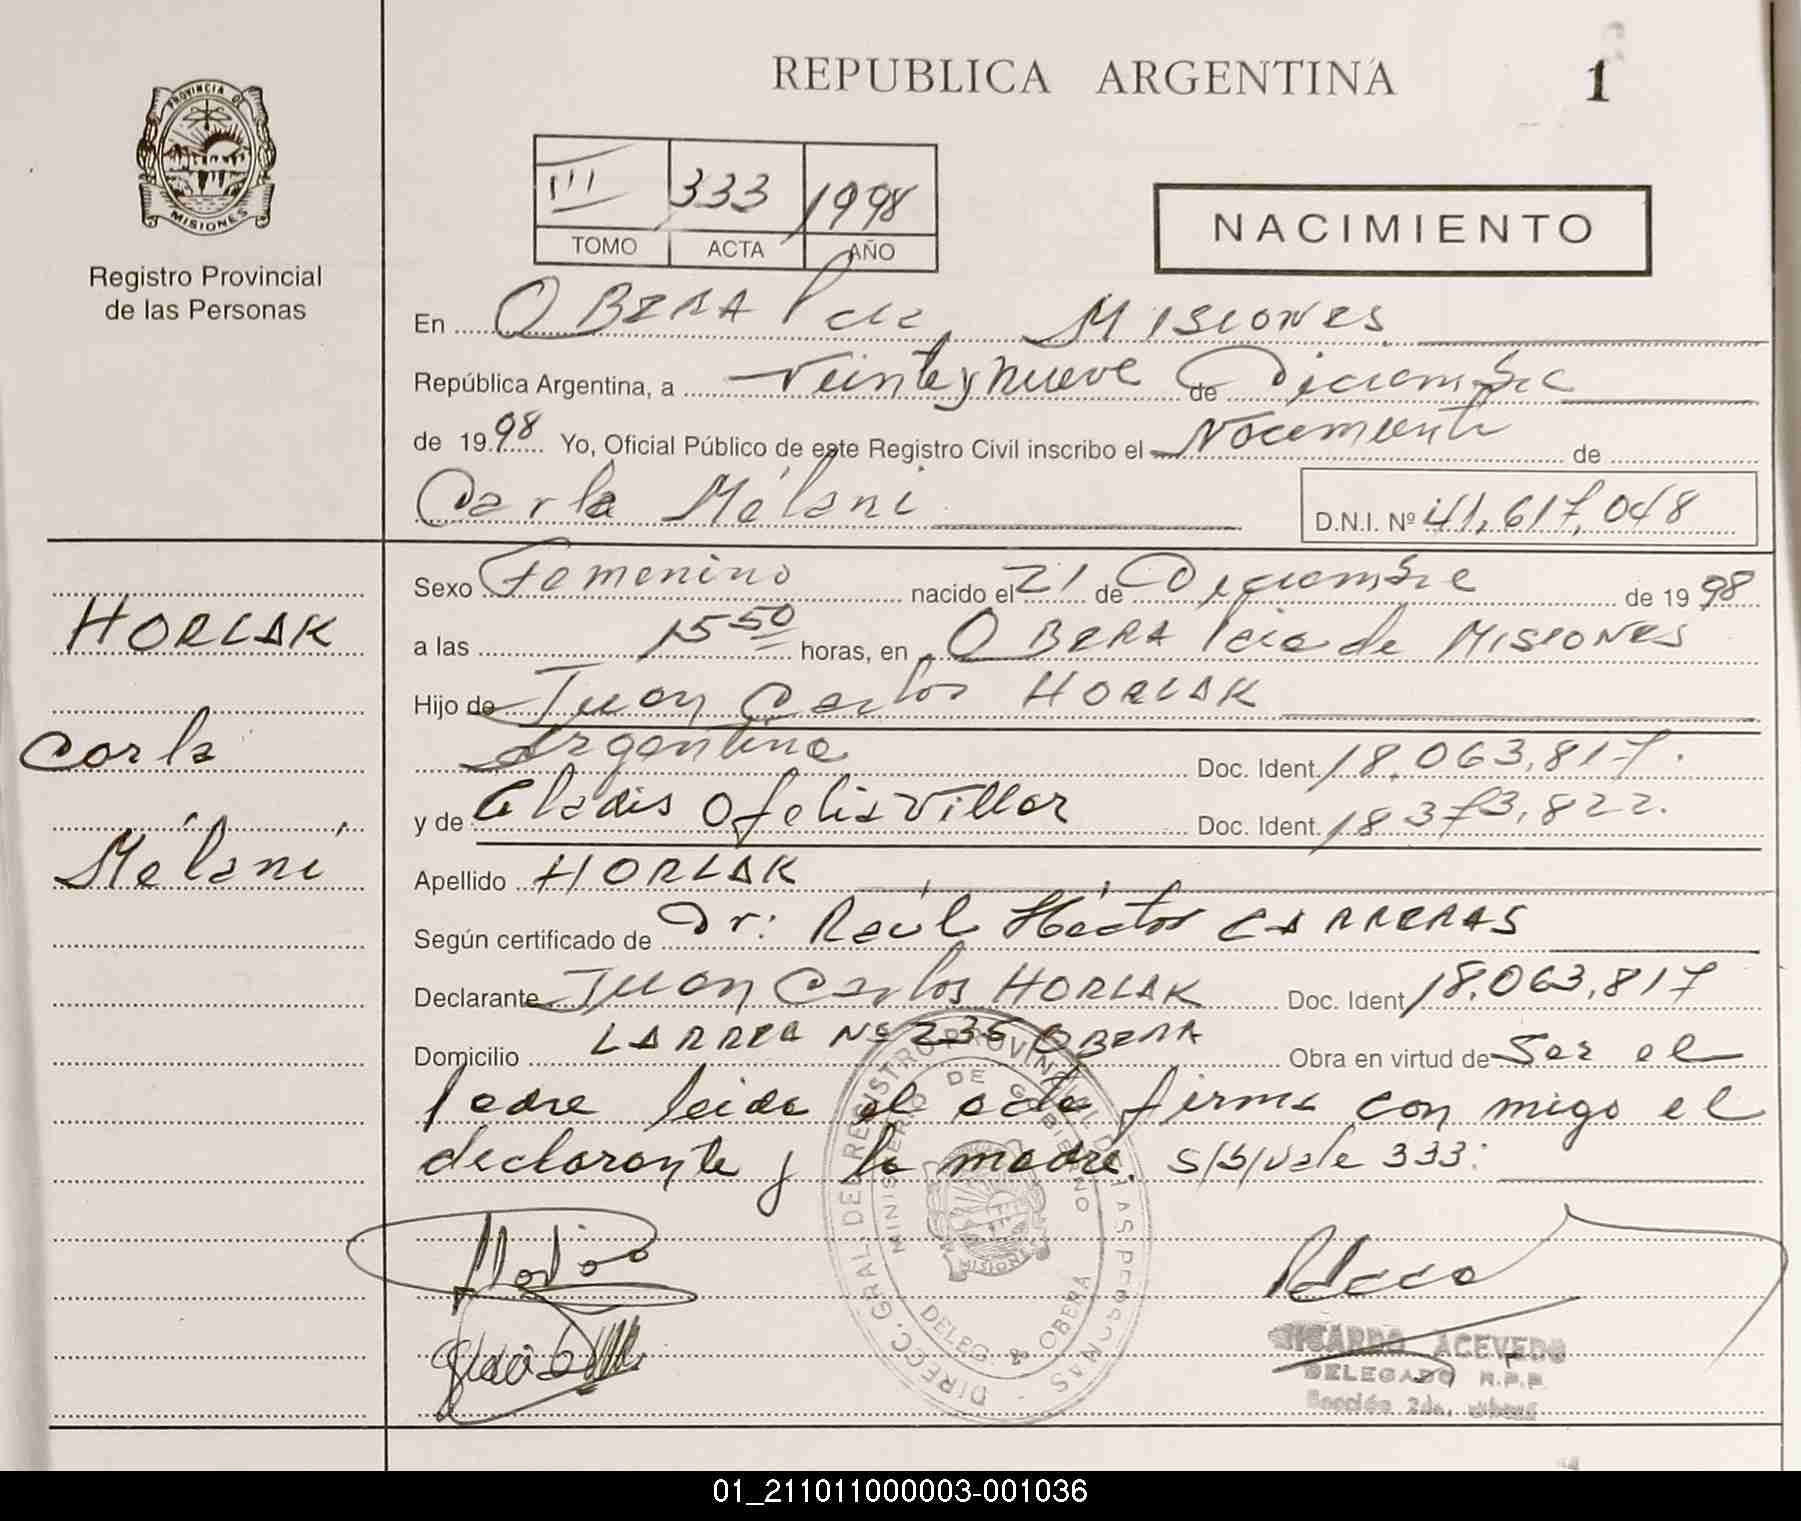 REPUBLICA ARGENTINA
1
PROVINCIA DE
MISIONES
Registro Provincial
de las Personas
III 333 1998
TOMO ACTA AÑO
NACIMIENTO
En OBERA Pcia, MISIONES
República Argentina, a Veinte y nueve de Diciembre
de 1998 Yo, Oficial Público de este Registro Civil inscribo el Nacimiento de
Carla Mélani
D.N.I. Nº 41.617.048
HORLAK
Carla
Mélaní
Sexo Femenino nacido el 21 de Diciembre de 1998
a las 15 50 horas, en OBERA Pcia de MISIONES
Hijo de Juan Carlos HORLAK
Argentino Doc. Ident. 18.063.817.
y de Gladis Ofelia Villar Doc. Ident. 18373.822.
Apellido HORLAK
Según certificado de Dr: Raúl Héctor CARRERAS
Declarante Juan Carlos HORLAK Doc. Ident 18.063.817
Domicilio LARREA Nº 235 OBERA Obra en virtud de Ser el
padre leida el acta firma con migo el
declarante y la madre. S/b/vale 333:
DIRECC. GRAL. DEL REGISTRO PROVINCIAL DE LAS PERSONAS
MINISTERIO DE GOBIERNO
MISIONES
DELEG. OBERA
RICARDO ACEVEDO
DELEGADO R.P.P.
Sección 2da. Oberá
01_211011000003-001036